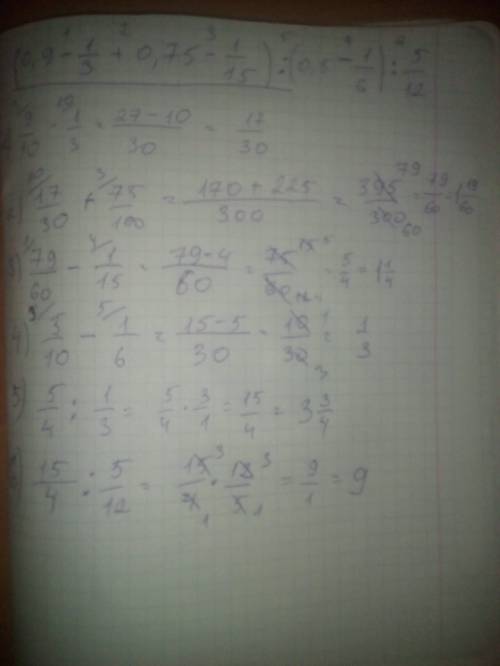 (0,9 - 1/3 + 0,75 - 1/15) : (0,5 - 1/6) : 5/12
9/10 - 1/3 = (27-10)/30 = 17/30
2) 17/30 + 75/100 = (170+225)/300 = 395/300 = 79/60 = 1 19/60
3) 79/60 - 1/15 = (79-4)/60 = 75/60 = 5/4 = 1 1/4
4) 5/10 - 1/6 = (15-5)/30 = 10/30 = 1/3
5) 5/4 : 1/3 = 5/4 · 3/1 = 15/4 = 3 3/4
6) 15/4 : 5/12 = 15/4 · 12/5 = 9/1 = 9